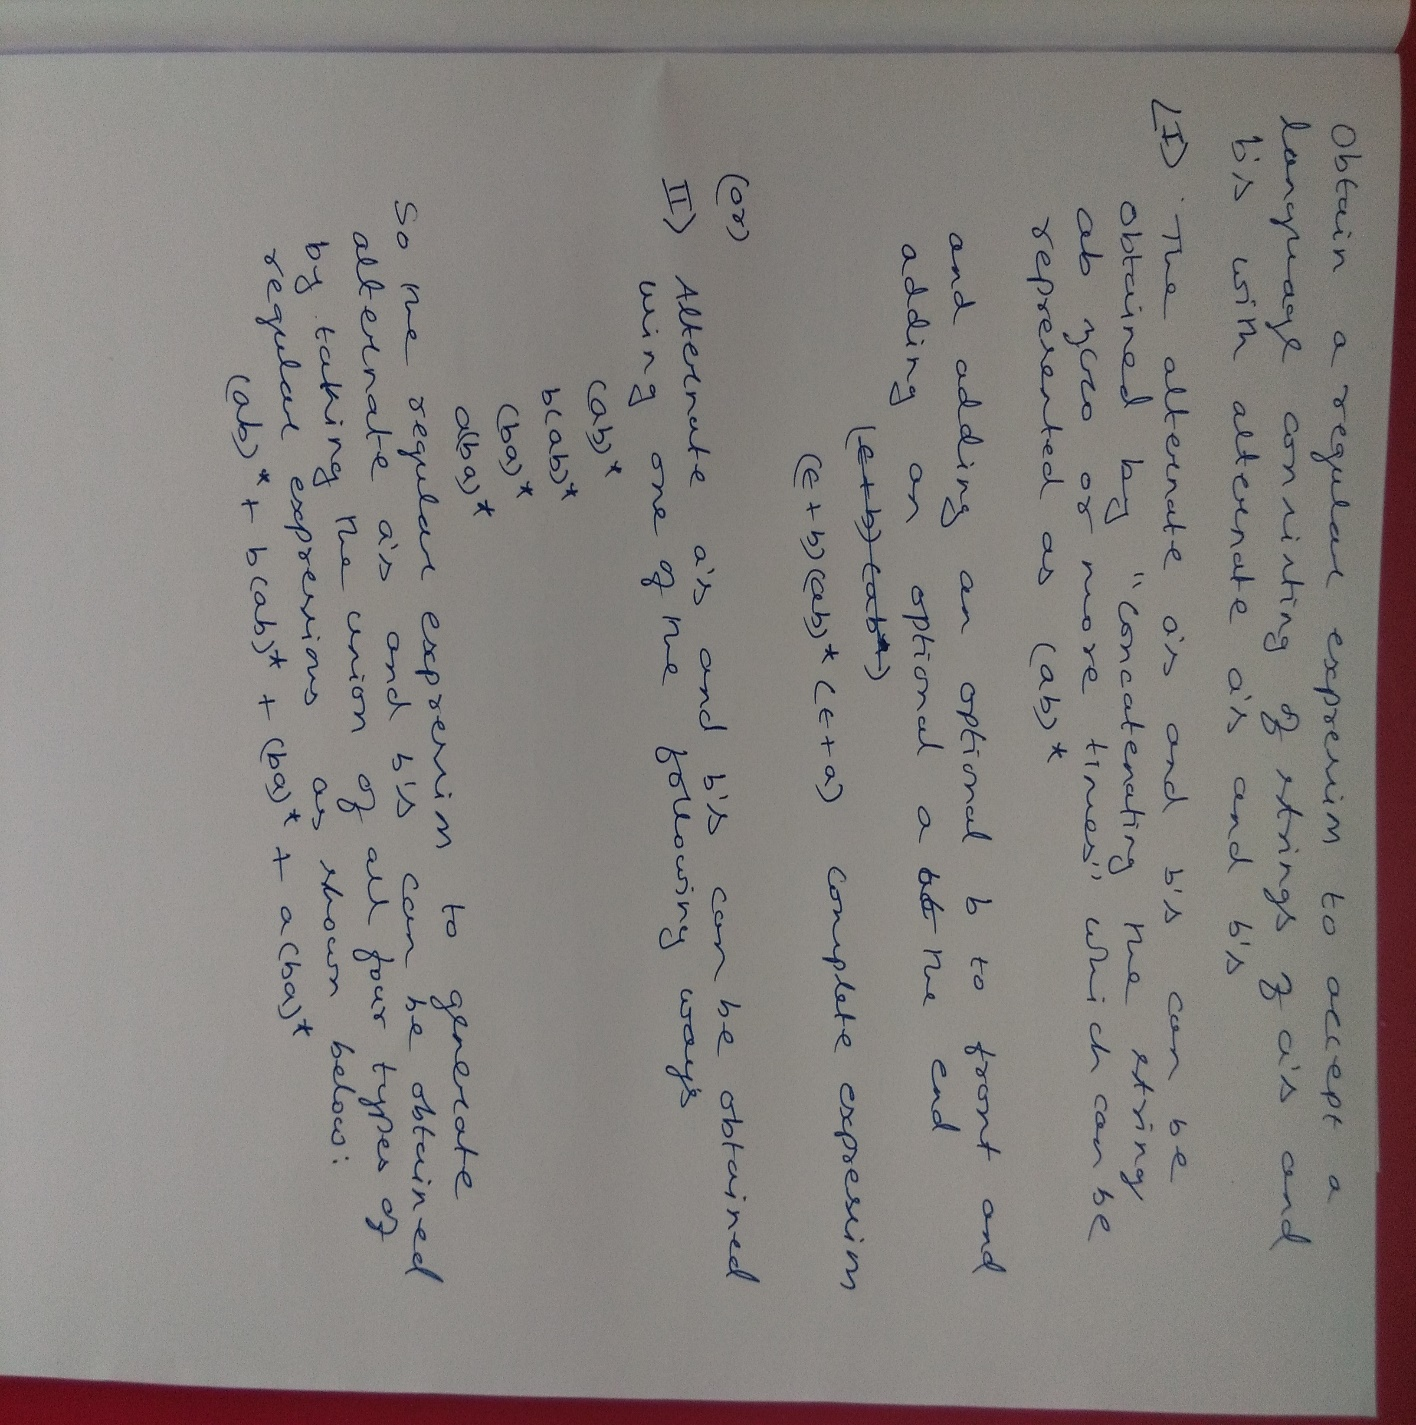 Obtain a regular expression to accept a
language consisting of strings of a's and
b's with alternate a's and b's
(I) The alternate a's and b's can be
obtained by "concatenating the string
ab zero or more times" which can be
represented as (ab)*
and adding an optional b to front and
adding an optional a at the end
(ε+b)(ab*)
(ε+b)(ab)*(ε+a) complete expression
(or)
II) Alternate a's and b's can be obtained
using one of the following ways
(ab)*
b(ab)*
(ba)*
a(ba)*
So the regular expression to generate
alternate a's and b's can be obtained
by taking the union of all four types of
regular expressions as shown below:
(ab)* + b(ab)* + (ba)* + a(ba)*